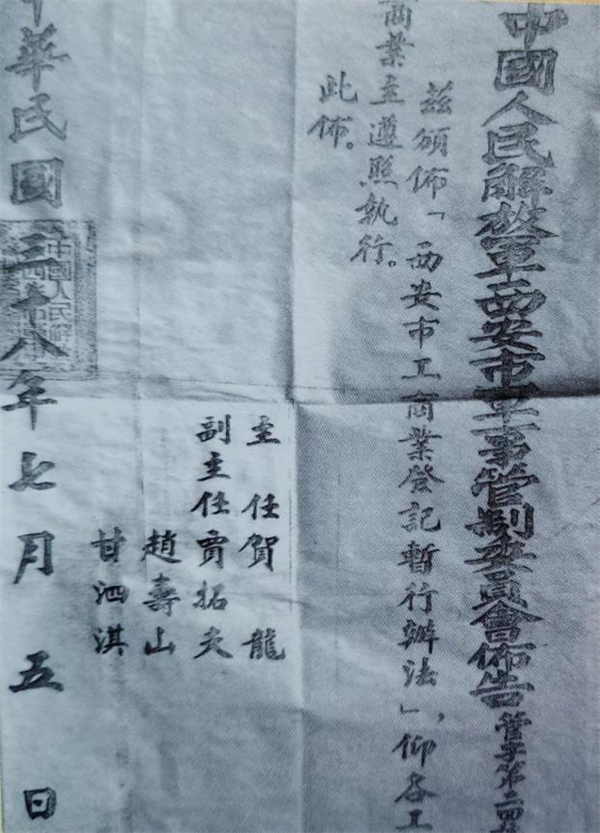 中國人民解放軍西安市軍事管制委員會佈告 管字第二四
茲頒佈「西安市工商業登記暫行辦法」,仰各工
商業主遵照執行。
此佈。
主 任 賀 龍
副主任 賈拓夫
趙壽山
甘泗淇
中華民國三十八年七月五日
中國人民解